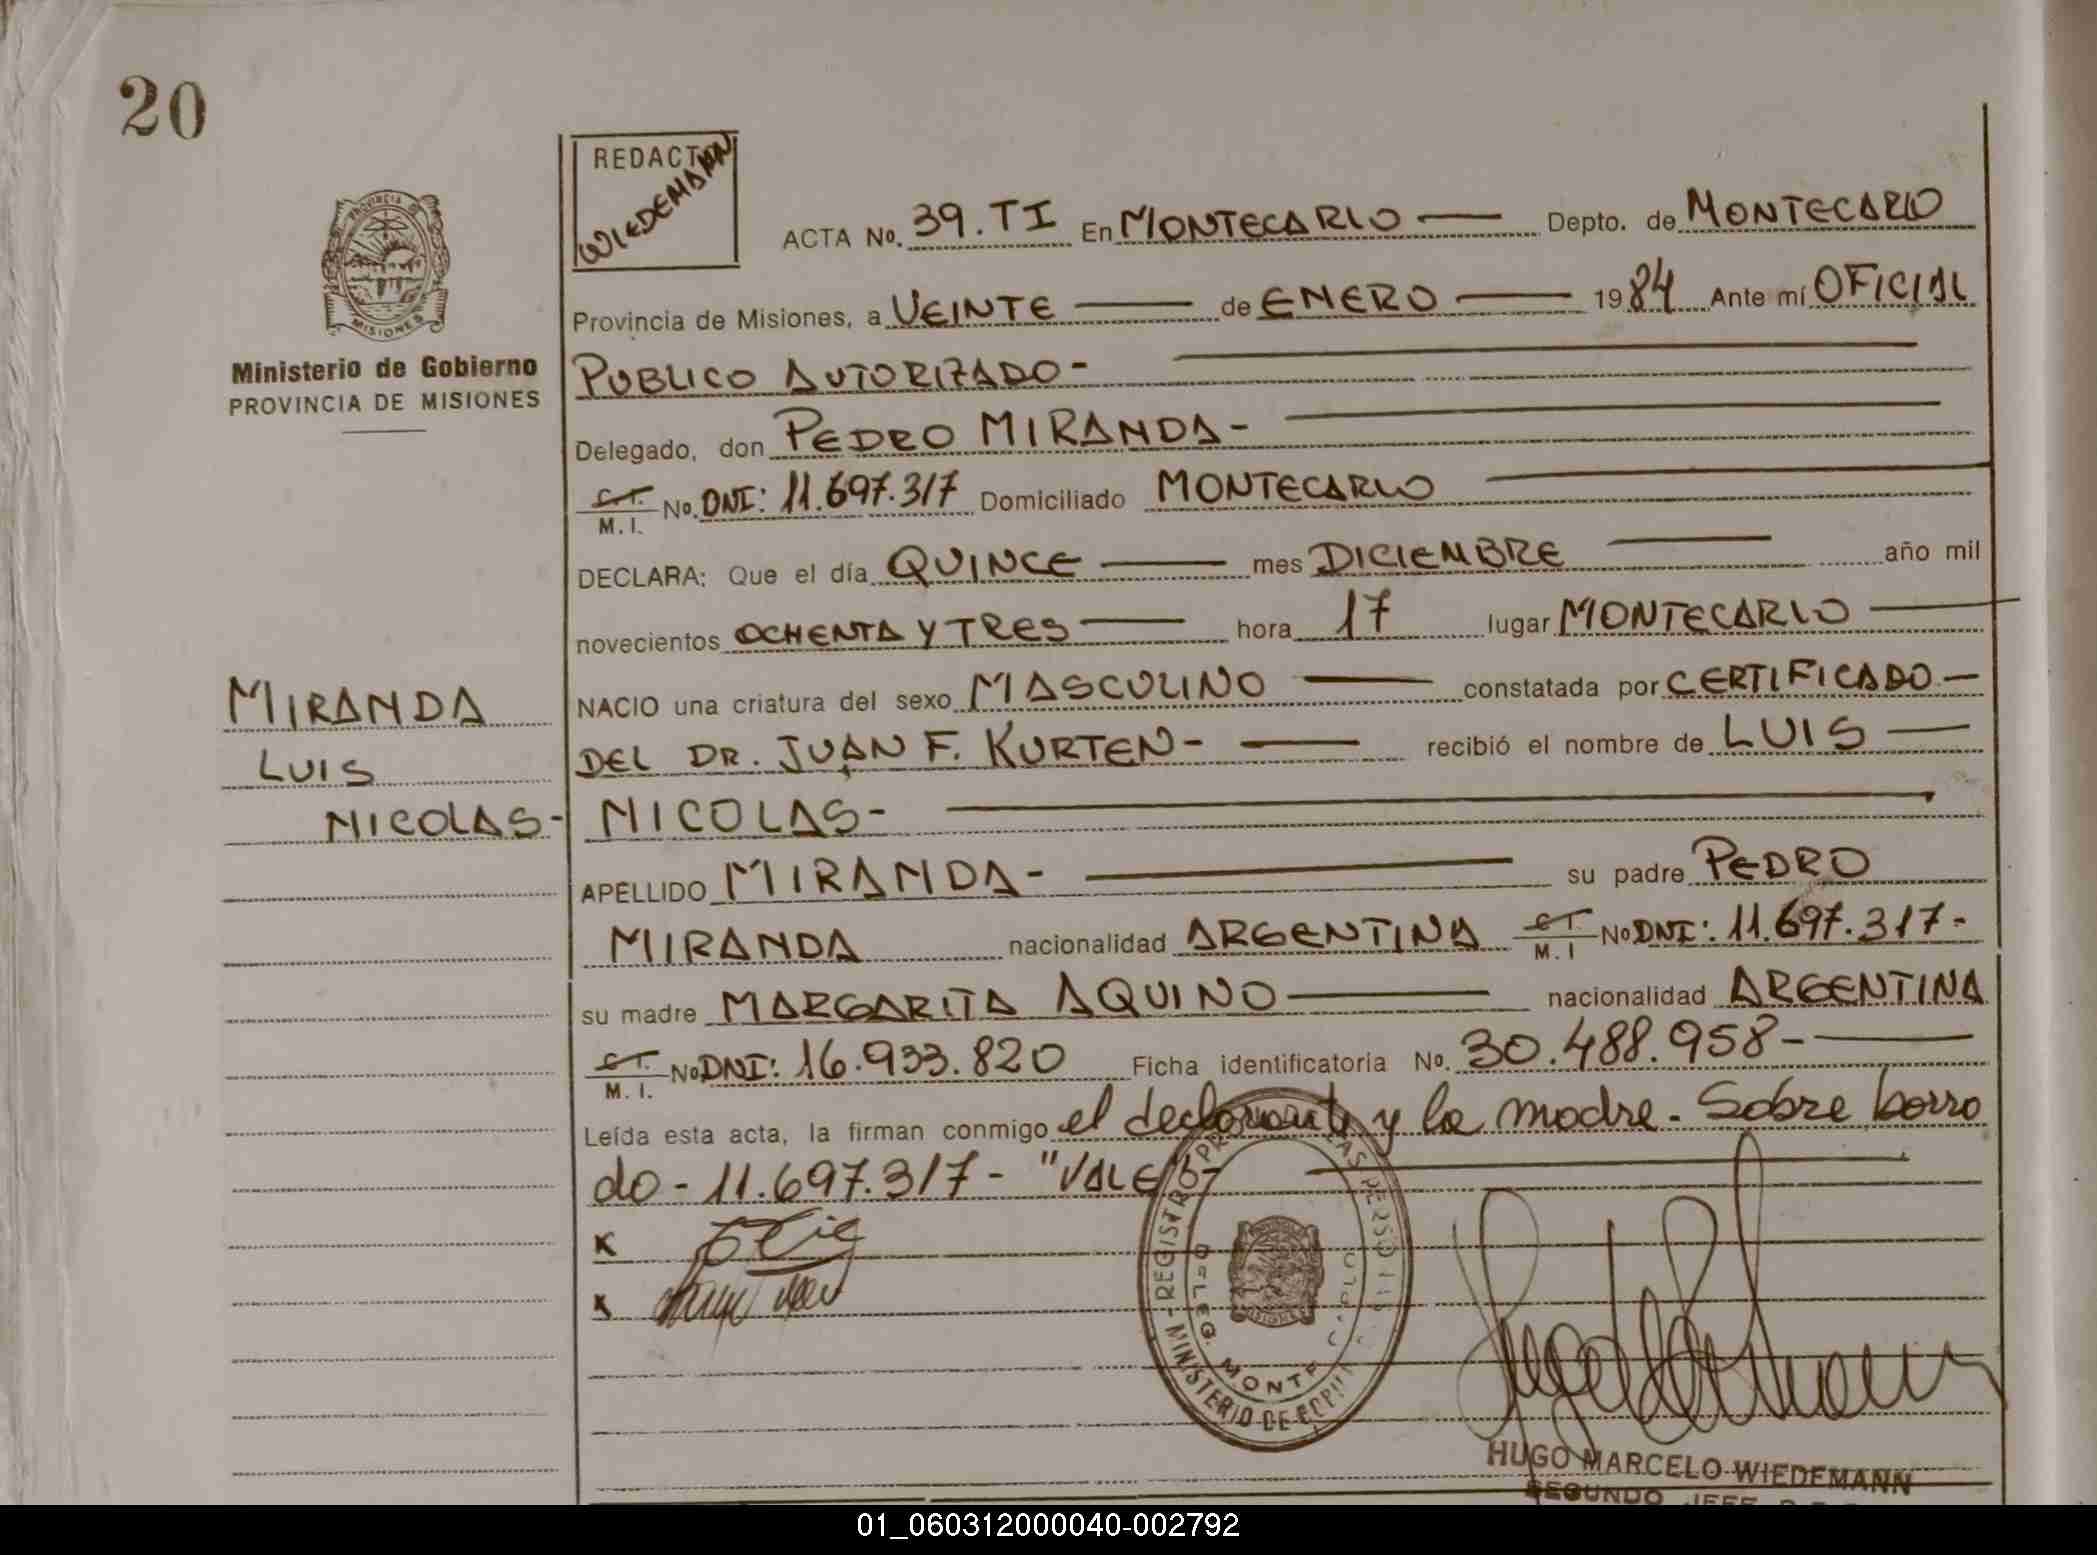 20
REDACTÓ
WIEDEMANN
ACTA No. 39.TI En MONTECARLO Depto. de MONTECARLO
Provincia de Misiones, a VEINTE de ENERO 1984 Ante mí OFICIAL
PUBLICO AUTORIZADO-
Delegado, don PEDRO MIRANDA-
C.I. M.I. No. DNI: 11.697.317 Domiciliado MONTECARLO
DECLARA: Que el día QUINCE mes DICIEMBRE año mil
novecientos OCHENTA Y TRES hora 17 lugar MONTECARLO
NACIO una criatura del sexo MASCULINO constatada por CERTIFICADO
DEL DR. JUAN F. KURTEN- recibió el nombre de LUIS
NICOLAS-
APELLIDO MIRANDA- su padre PEDRO
MIRANDA nacionalidad ARGENTINA C.I. M.I No DNI: 11.697.317-
su madre MARGARITA AQUINO nacionalidad ARGENTINA
C.I. M.I. No DNI: 16.933.820 Ficha identificatoria No. 30.488.958-
Leída esta acta, la firman conmigo el declarante y la madre. Sobre borra
do - 11.697.317 - "VALE"
PROVINCIA DE
MISIONES
Ministerio de Gobierno
PROVINCIA DE MISIONES
MIRANDA
LUIS
NICOLAS-
REGISTRO PERSONAS
MINISTERIO DE
DELEG. MONTECARLO
MISIONES
HUGO MARCELO WIEDEMANN
SEGUNDO JEFE
01_060312000040-002792